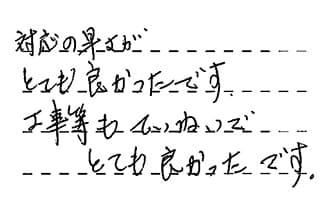 対応の早さが
とても良かったです。
工事等もていねいで
とても良かったです。